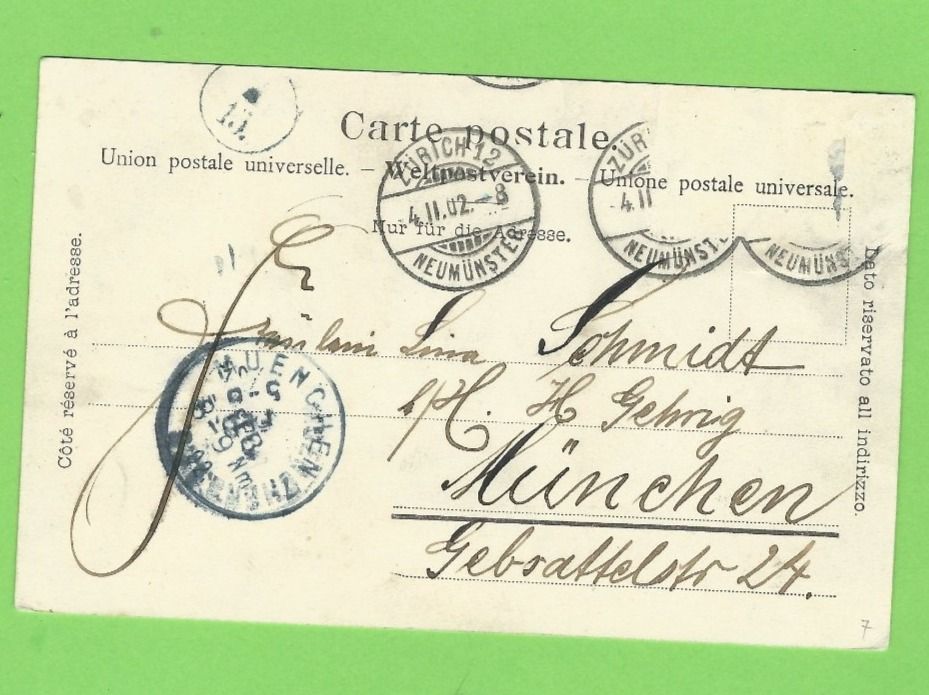 15.
Carte postale.
Union postale universelle. — Weltpostverein. — Unione postale universale.
Nur für die Adresse.
Côté réservé à l'adresse.
Dato riservato all indirizzo.
ZÜRICH 12
4.II.02.-8
NEUMÜNSTER
ZÜR
4.II
NEUMÜNST
NEUMÜNS
MUENCHEN
5
FEB
Fräulein Lina Schmidt
H. Gehrig
München
Gebsattelstr 24.
7